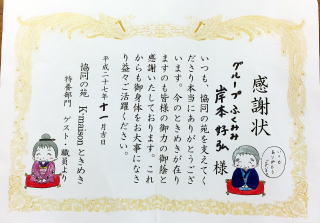 感謝状
グループふくみみ
岸本 好弘 様
いつも、協同の苑を支えてく
ださり本当にありがとうござ
います。今のときめきが在り
ますのも皆様の御力の御陰と
感謝いたしております。これ
からも御身体をお大事になさ
り益々ご活躍ください。
平成二十七年 十一月吉日
協同の苑 K'maisonときめき
特養部門 ゲスト・職員より